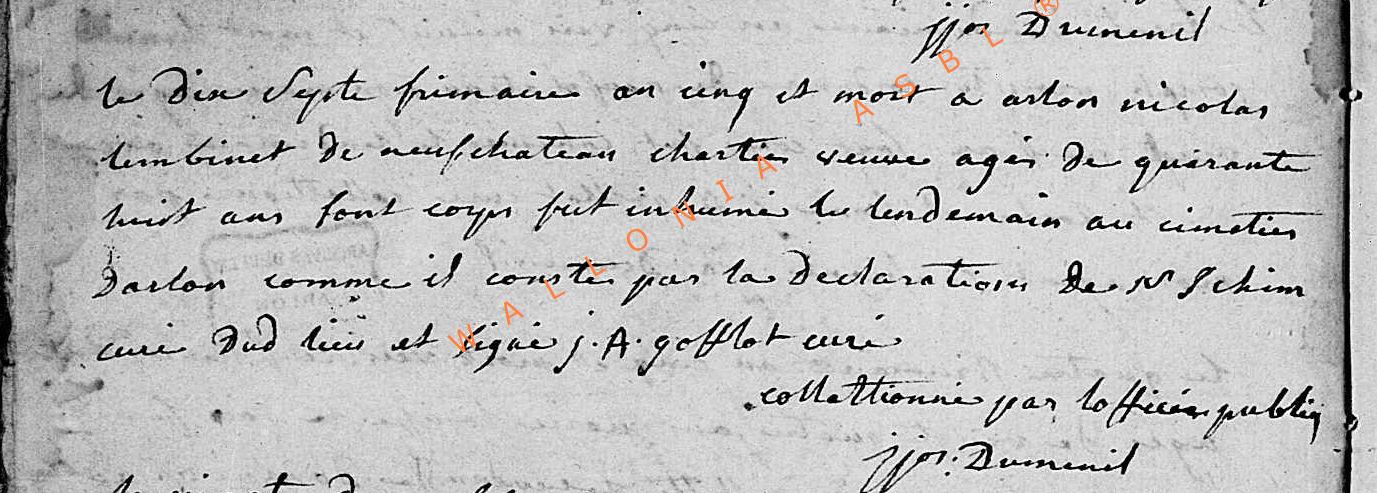 jjos Dumenil
le dix Septe frimaire an cinq est mort a arlon nicolas
lembinet de neufchateau chartier veuve agés de quarante
huit ans sont corps fut inhumé le lendemain au cimetier
Darlon comme il conste par la Declaration de
curé Dud lieu et signé j. A. gofflot curé
collattionné par lofficier publiq
jjos. Dumenil
WALLONIA ASBL ®